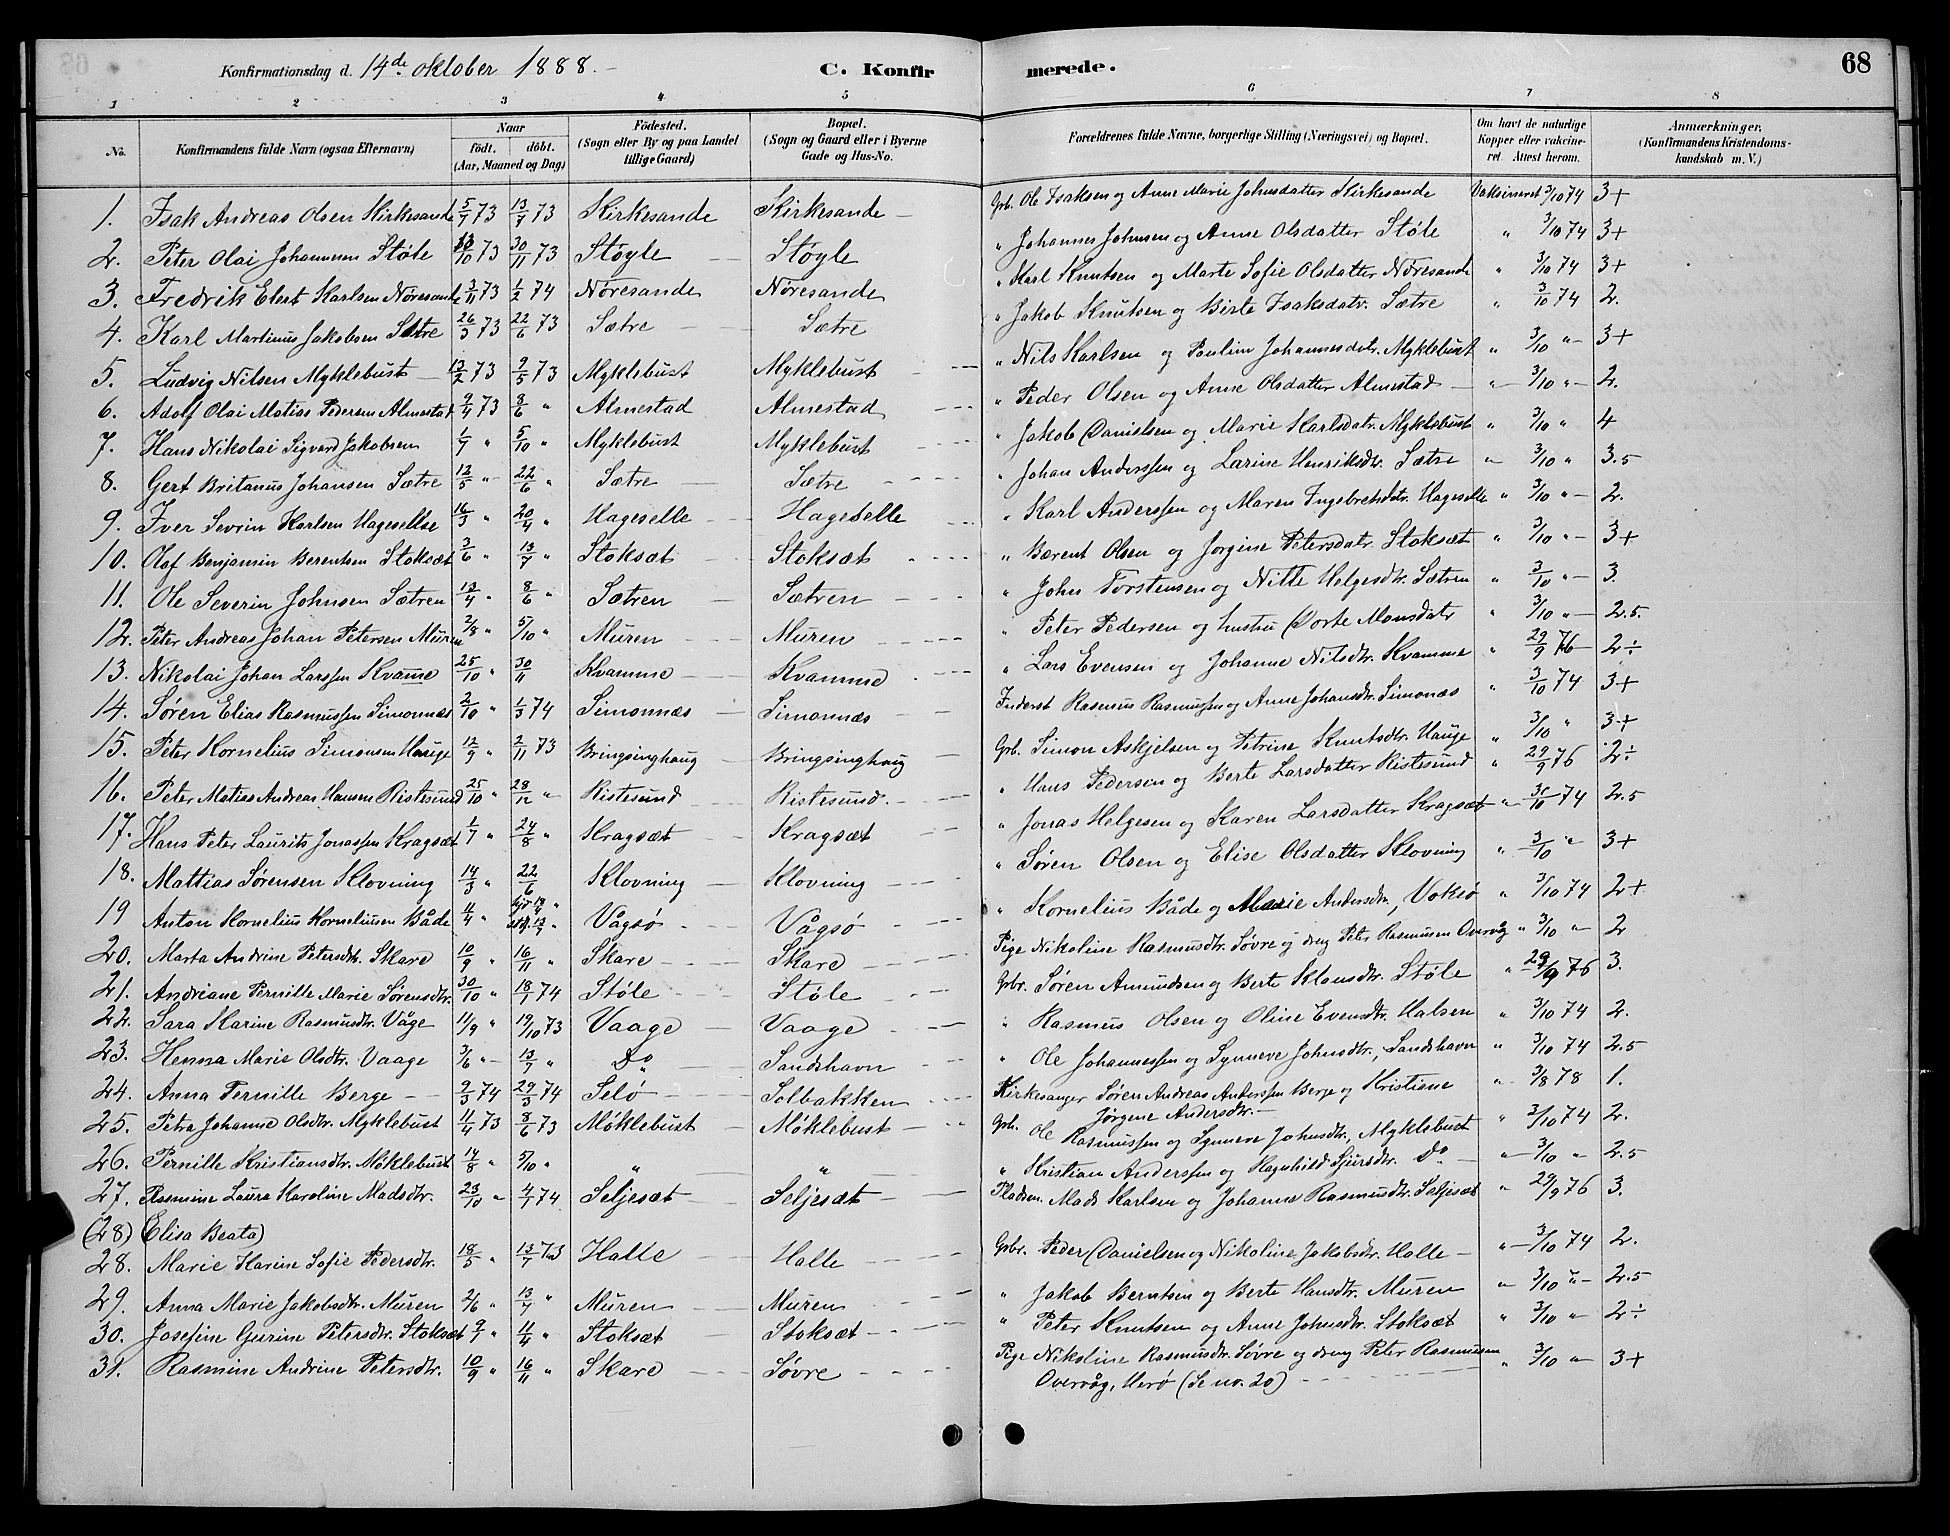 Konfirmationsdag d. 14de oktober 1888. C. Konfirmerede. 68
1 2 3 4 5 6 7 8
No. Konfirmandens fulde Navn (ogsaa Efternavn) Naar födt. döbt. (Aar, Maaned og Dag) Födested. (Sogn eller By og paa Landet tillige Gaard) Bopæl. (Sogn og Gaard eller i Byerne Gade og Hus-No. Forældrenes fulde Navne, borgerlige Stilling (Næringsvei) og Bopæl. Om havt de naturlige Kopper eller vakcineret Attest herom. Anmærkninger. (Konfirmandens Kristendomskundskab m. V.)
1. Isak Andreas Olsen Kirkesande 5/7 73 13/7 73 Kirkesande Kirkesande Grb. Ole Isaksen og Anne Marie Johnsdatter Kirkesande Vaksineret 3/10 74 3+
2. Peter Olai Johannesen Støle 10/10 73 30/11 73 Støyle Støyle " Johannes Johnsen og Anne Olsdatter Støle " 3/10 74 3+
3. Fredrik Elert Karlsen Nøresande 3/11 73 1/2 74 Nøresande Nøresande " Karl Knutsen og Marte Sofie Olsdatter Nøresande " 3/10 74 3+
4. Karl Martinus Jakobsen Sætre 26/3 73 22/6 73 Sætre Sætre " Jakob Knutsen og Birte Isaksdatr. Sætre " 3/10 74 2.
5. Ludvig Nilsen Myklebust 13/2 73 2/5 73 Myklebust Myklebust " Nils Karlsen og Pauline Johannesdatr. Myklebust " 3/10 " 3+
6. Adolf Olai Matias Pedersen Almestad 9/4 73 8/6 " Almestad Almestad " Peder Olsen og Anne Olsdatter Almestad " 3/10 " 2.
7. Hans Nikolai Sigvard Jakobsen 1/7 " 5/10 " Myklebust Myklebust " Jakob Danielsen og Marie Karlsdatr. Myklebust " 3/10 " 4
8. Gert Britanus Johansen Sætre 12/5 " 22/6 " Sætre Sætre " Johan Anderssen og Larine Henriksdtr. Sætre " 3/10 " 3.5
9. Iver Sevrin Karlsen Hageselle 16/3 " 20/4 " Hageselle Hageselle " Karl Anderssen og Maren Ingebretsdatr. Hageselle " 3/10 " 2.
10. Olaf Benjamin Berentsen Stoksæt 3/6 " 13/7 " Stoksæt Stoksæt " Bærent Olsen og Jørgine Petersdatr. Stoksæt " 3/10 " 3+
11. Ole Severin Johnsen Sætren 13/4 " 8/6 " Sætren Sætren " John Torstensen og Nille Helgesdtr. Sætren " 3/10 " 3.
12. Peter Andreas Johan Petersen Muren 2/8 " 5/10 " Muren Muren " Peter Pedersen og hustru Dorte Monsdatr " 3/10 " 2.5
13. Nikolai Johan Larssen Kvamme 25/10 " 30/11 Kvamme Kvamme " Lars Evensen og Johanne Nilsdtr. Kvamme " 29/9 76 2÷
14. Søren Elias Rasmussen Simonnæs 2/10 " 1/3 74 Simonnæs Simonnæs Inderst Rasmus Rasmussen og Anne Johansdtr. Simonæs " 3/10 74 3+
15. Peter Kornelius Simonsen Hauge 12/9 " 2/11 73 Bringsinghaug Bringsinghaug Grb. Simon Askjelsen og Petrine Knutsdtr. Hauge " 3/10 " 3+
16. Peter Matias Andreas Hansen Ristesund 25/10 " 28/12 " Ristesund Ristesund. " Hans Pedersen og Berte Larsdatter Ristesund " 29/9 76 2÷
17. Hans Peter Laurits Jonassen Kragsæt 1/7 " 24/8 " Kragsæt Kragsæt " Jonas Helgesen og Karen Larsdatter Kragsæt " 3/10 74 2.5
18. Mattias Sørensen Klovning 14/3 " 22/6 Klovning Klovning " Søren Olsen og Elise Olsdatter Klovning " 3/10 " 3+
19 Anton Kornelius Korneliusen Både 11/4 " 13/7 " Vågsø Vågsø " Kornelius Både og Marie Andersdtr., Voksø " 3/10 74 2+
20. Marta Andrine Petersdtr. Skare 10/9 " 16/11 " Skare Skare Pige Nikoline Rasmusdtr. Søvre og dreng Peter Rasmusen Overvåg " 3/10 " 2
21. Andriane Pernille Marie Sørensdtr. 30/10 " 18/1 74 Støle Støle Gbr. Søren Amundsen og Berte Klausdtr. Støle " 29/9 76 3.
22. Sara Karine Rasmusdtr. Våge 11/9 " 19/10 73 Vaage Vaage " Rasmus Olsen og Oline Evensdtr. Halsen " 3/10 74 2.
23. Henna Marie Olsdtr. Vaage 3/6 " 13/7 " Do Sandshavn " Ole Johannessen og Synneve Johnsdtr., Sandshavn " 3/10 74 2.5
24. Anna Pernille Berge 9/3 74 29/3 74 Selø Solbakken Kirkesanger Søren Andreas Anderssen Berge og Kristiane " 3/8 78 1.
Jørgine Andersdtr.
25. Petra Johanne Olsdtr. Myklebust 11/4 73 8/6 73 Møklebust Møklebust Grb. Ole Rasmussen og Synneve Johnsdtr., Myklebust " 3/10 74 2.
26. Pernille Kristiansdtr. Møklebust 14/8 " 5/10 " " " " Kristian Anderssen og Ragnhild Sjursdtr. Do " 3/10 " 2.5
27. Rasmine Laura Karoline Madsdtr. 23/10 " 4/1 74 Seljesæt Seljesæt Pladsm. Mads Karlsen og Johanne Rasmusdtr. Seljesæt " 29/9 76 3.
(28) (Elisa Beata)
28. Marie Karine Sofie Pedersdtr. 18/5 " 13/7 73 Halle Halle Gbr. Peder Danielsen og Nikoline Jakobsdtr. Halle " 3/10 74 2.
29. Anna Marie Jakobsdtr. Muren 2/6 " 13/7 " Muren Muren " Jakob Berntsen og Berte Hansdtr. Muren " 3/10 " 2.5
30. Josefine Gurine Petersdtr. Stoksæt 9/1 " 11/4 " Stoksæt Stoksæt " Peter Knutsen og Anne Johnsdtr. Stoksæt " 3/10 " 2÷
31. Rasmine Andrine Petersdtr. 10/9 " 16/11 " Skare Søvre Pige Nikoline Rasmusdtr. Søvre og dreng Peter Rasmusen " 3/10 " 3+
Overvåg, Herø (Se no. 20)